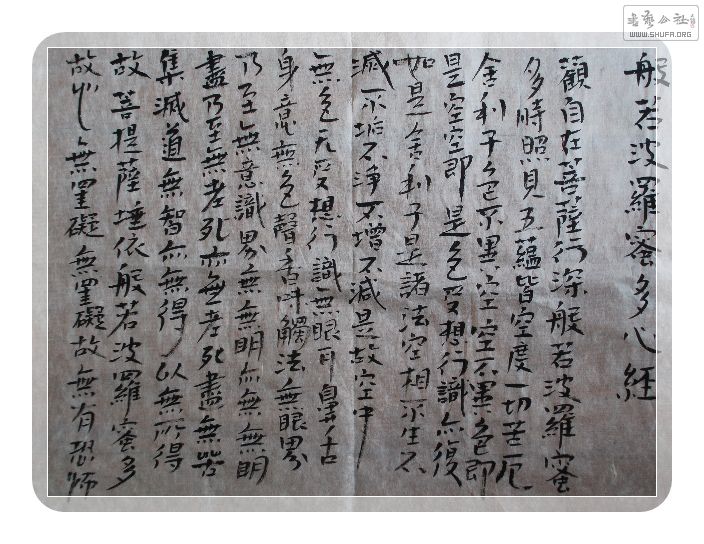 般若波羅蜜多心経
觀自在菩薩行深般若波羅蜜
多時照見五蘊皆空度一切苦厄
舍利子色不異空空不異色即
是空空即是色受想行識亦復
如是舍利子是諸法空相不生不
滅不垢不淨不增不減是故空中
無色无受想行識無眼耳鼻舌
身意無色聲香味觸法無眼界
乃至無意識界無無明亦無無明
盡乃至無老死亦無老死盡無苦
集滅道無智亦無得以無所得
故菩提薩埵依般若波羅蜜多
故心無罣礙無罣礙故無有恐怖
書藝公社
WWW.SHUFA.ORG